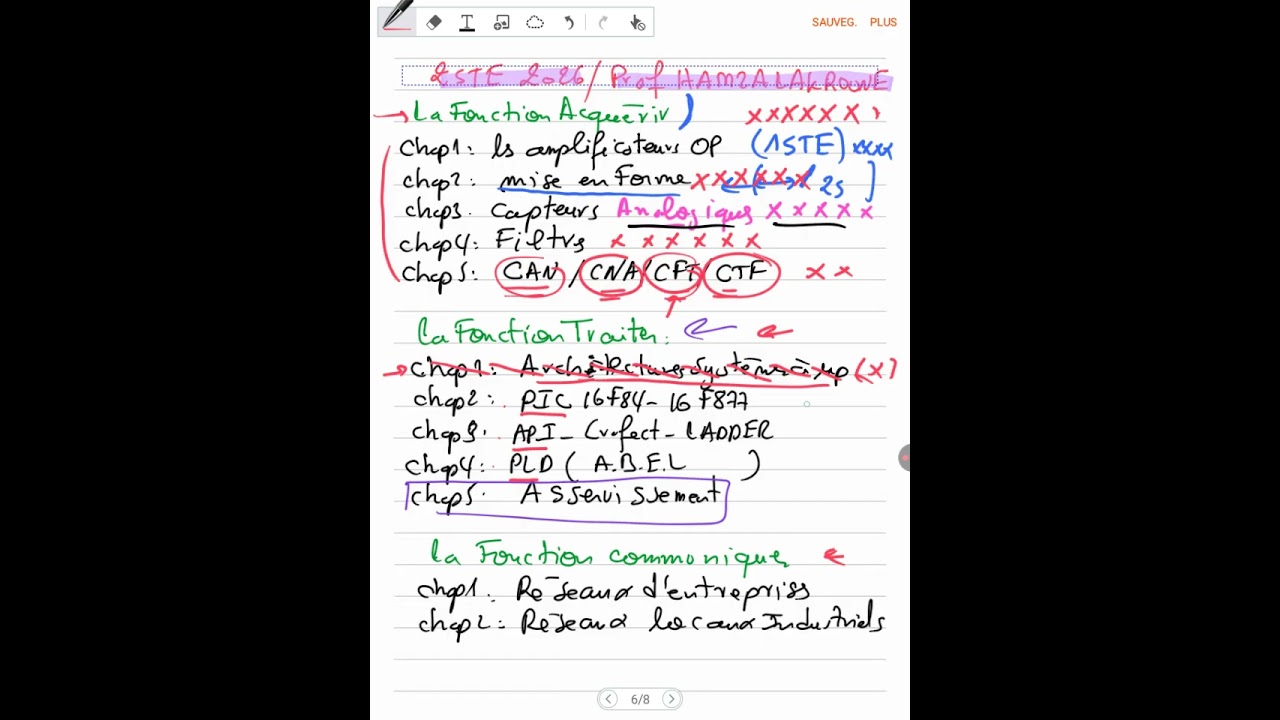 SAUVEG. PLUS
2STE 2026/ Prof HAMZA LAKROUNE
→ La Fonction Acquérir ) xxxxxx
Chap1: ls amplificateurs OP (1STE) xxxx
Chap2: mise en Forme xxxxxx 2s ]
chap3. Capteurs Analogiques xxxxx
chap4: Filtrs x x x x x x
Chap5: CAN / CNA / CFT / CTF x x
la Fonction Traiter:
→ chap1: Architecture Système à μp (x)
chap2: PIC 16F84- 16F877
chap3. API - Grafcet - LADDER
Chap4: PLD ( A.B.E.L )
chap5. Asservissement
la Fonction communiquer
chap1: Réseaux d'entrepriss
chap2: Réseaux locaux Industriels
6/8